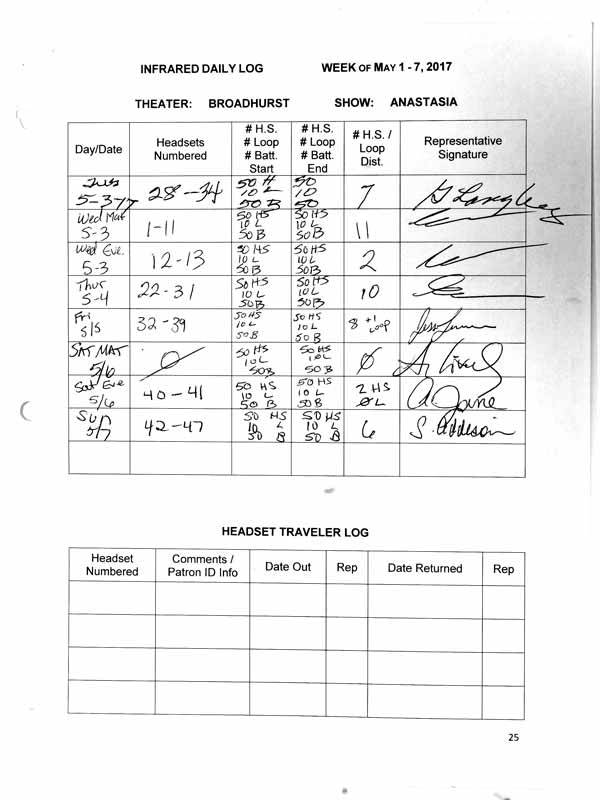 INFRARED DAILY LOG WEEK OF MAY 1 - 7, 2017
THEATER: BROADHURST SHOW: ANASTASIA
Day/Date Headsets Numbered # H.S. # Loop # Batt. Start # H.S. # Loop # Batt. End # H.S. / Loop Dist. Representative Signature
Tues 5-3-17 28-34 50 H 10 L 50 B 50 10 50 7
Wed Mat 5-3 1-11 50 HS 10 L 50 B 50 HS 10 L 50 B 11
Wed Eve. 5-3 12-13 50 HS 10 L 50 B 50 HS 10 L 50 B 2
Thur 5-4 22-31 50 HS 10 L 50 B 50 HS 10 L 50 B 10
Fri 5/5 32-39 50 HS 10 L 50 B 50 HS 10 L 50 B 8 +1 Loop
SAT MAT 5/6 Ø 50 HS 10 L 50 B 50 HS 10 L 50 B Ø
Sat Eve 5/6 40-41 50 HS 10 L 50 B 50 HS 10 L 50 B 2 HS ØL
Sun 5/7 42-47 50 HS 10 L 50 B 50 HS 10 L 50 B 6 S. Addeson
HEADSET TRAVELER LOG
Headset Numbered Comments / Patron ID Info Date Out Rep Date Returned Rep
25